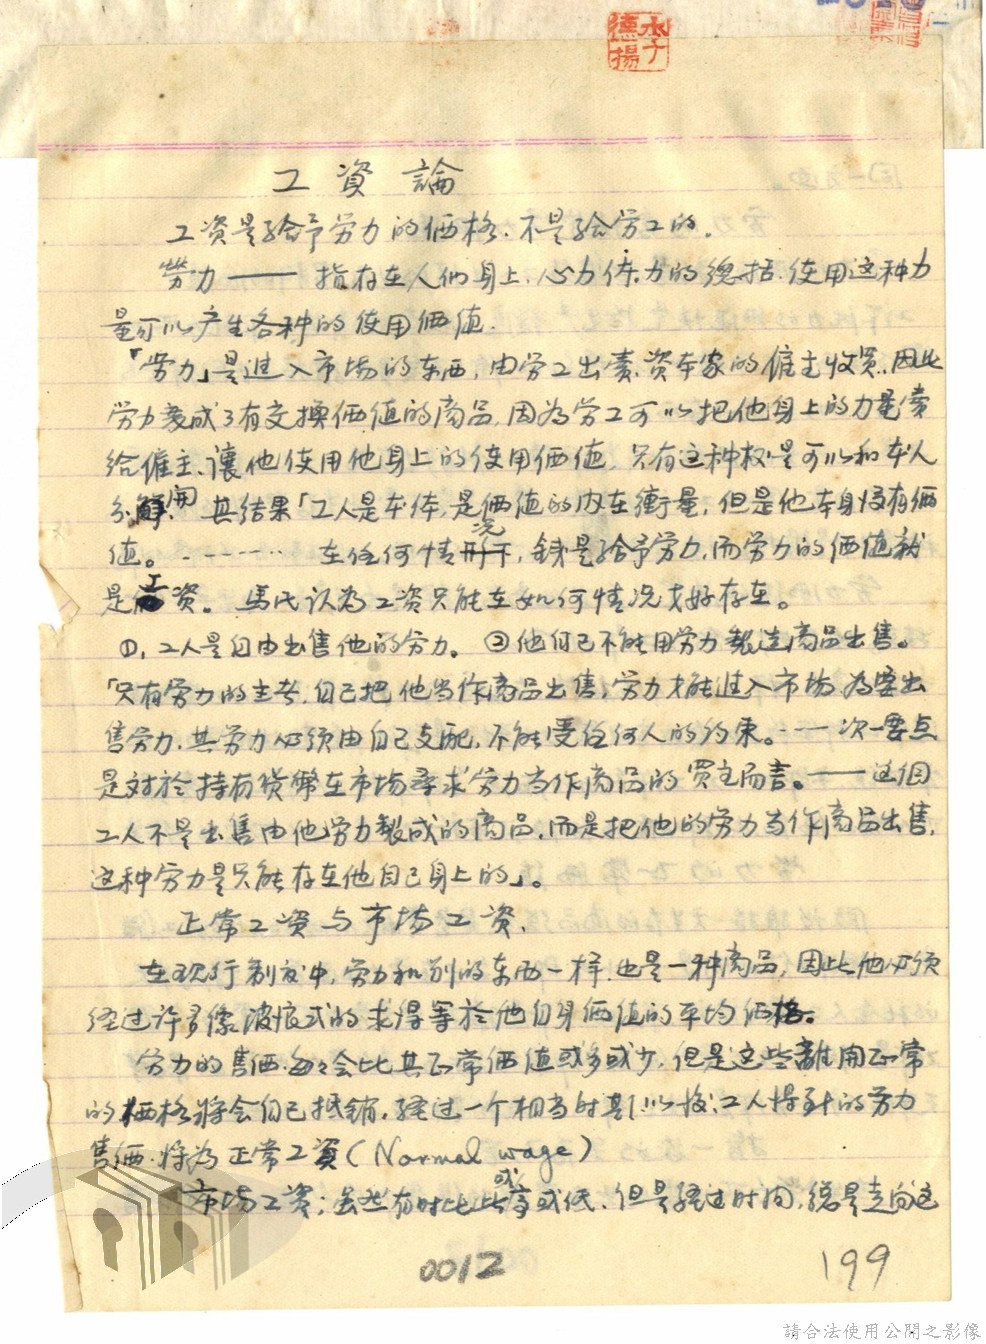 李
德揚
工資論
工资是給予労力的価格.不是給労工的.
勞力 —— 指存在人们身上.心力体力的總括.使用这种力
量可以产生各种的使用価值.
「労力」是進入市场的东西,由労工出賣.资本家的僱主收買.因此
労力変成了有交換価值的商品.因為労工可以把他身上的力量賣
给僱主、讓他使用他身上的使用価值.只有这种权是可以和本人
分開.其结果「工人是本体,是価值的内在衡量,但是他本身沒有価
值。--------在任何情况下,錢是給予労力,而労力的価值就
是工资。馬氏认为工资只能在如何情况才好存在。
①.工人是自由出售他的労力。②他自己不能用労力製造商品出售。
「只有労力的主者.自己把他当作商品出售,労力才能進入市场.為要出
售労力.其労力必须由自己支配,不能受任何人的约束。---次一要点
是对於持有货幣在市场尋求労力当作商品的買主而言。——这個
工人不是出售由他労力製成的商品.而是把他的労力当作商品出售.
这种労力是只能存在他自己身上的」。
正常工资与市场工资.
在现行制度中,労力和别的东西一样.也是一种商品,因此他必须
经过许多像波浪式的求得等於他自身価值的平均価格。
労力的售価.每々会比其正常価值或多或少,但是这些離開正常
的価格将会自己抵銷.经过一个相当时期以後.工人得到的労力
售価.将為正常工資(Normal wage)
市场工资;虽然有时比此或高或低.但是经过时间,總是走向这
0012
199
請合法使用公開之影像